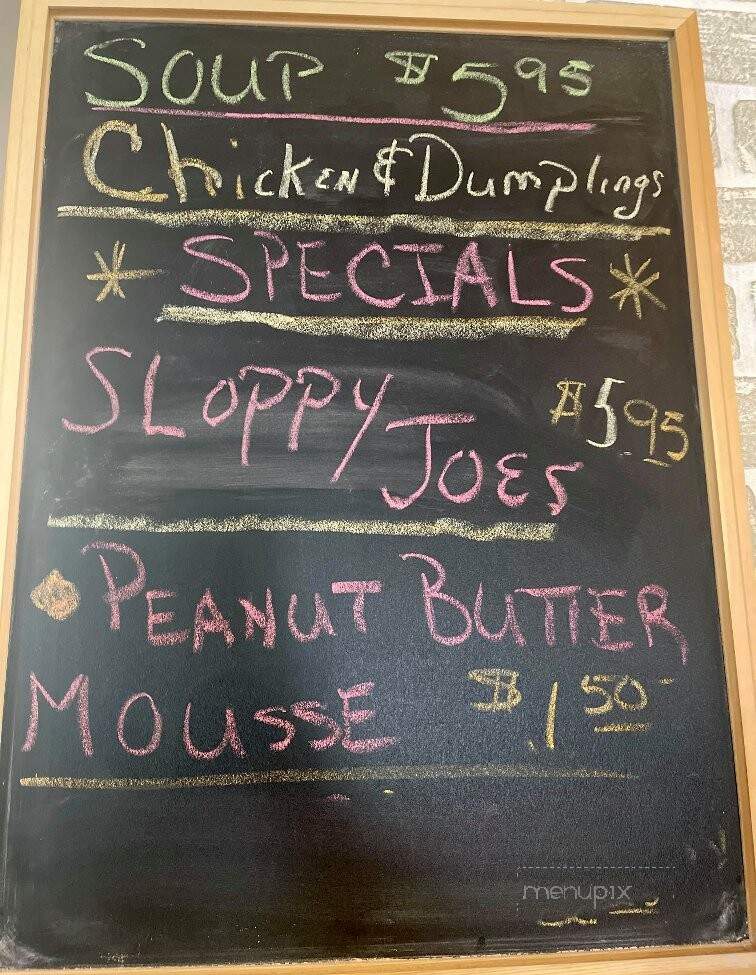 SOUP $5.95
Chicken & Dumplings
* SPECIALS *
SLOPPY JOES $5.95
PEANUT BUTTER
MOUSSE $1.50
menupix